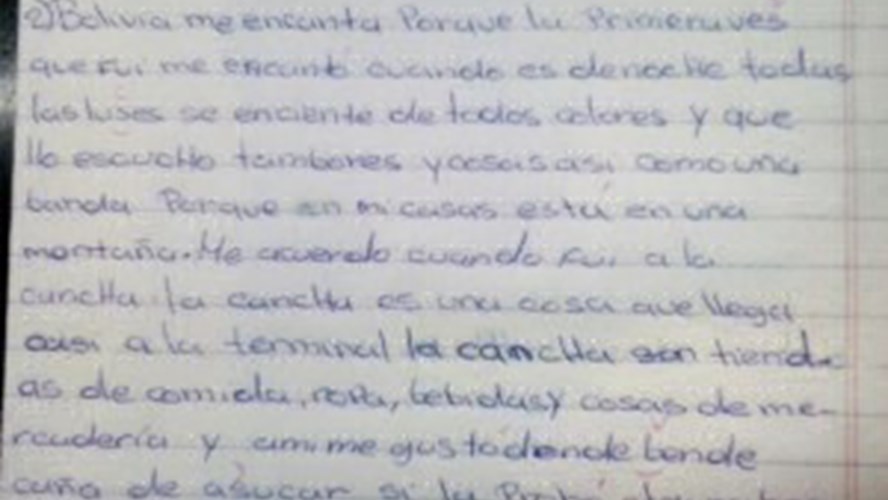 2) Bolivia me encanta Porque la Primera ves
que fui me encanto cuando es de noche todas
las luses se enciente de todos colores y que
llo escucho tambores y cosas asi como una
banda Porque en mi casas esta en una
montaña. Me acuerdo cuando fui a la
cancha la cancha es una cosa que llega
casi a la terminal la cancha son tiend
as de comida, ropa, bebidas y cosas de me-
rcadería y ami me gusta donde bende
caña de asucar si la